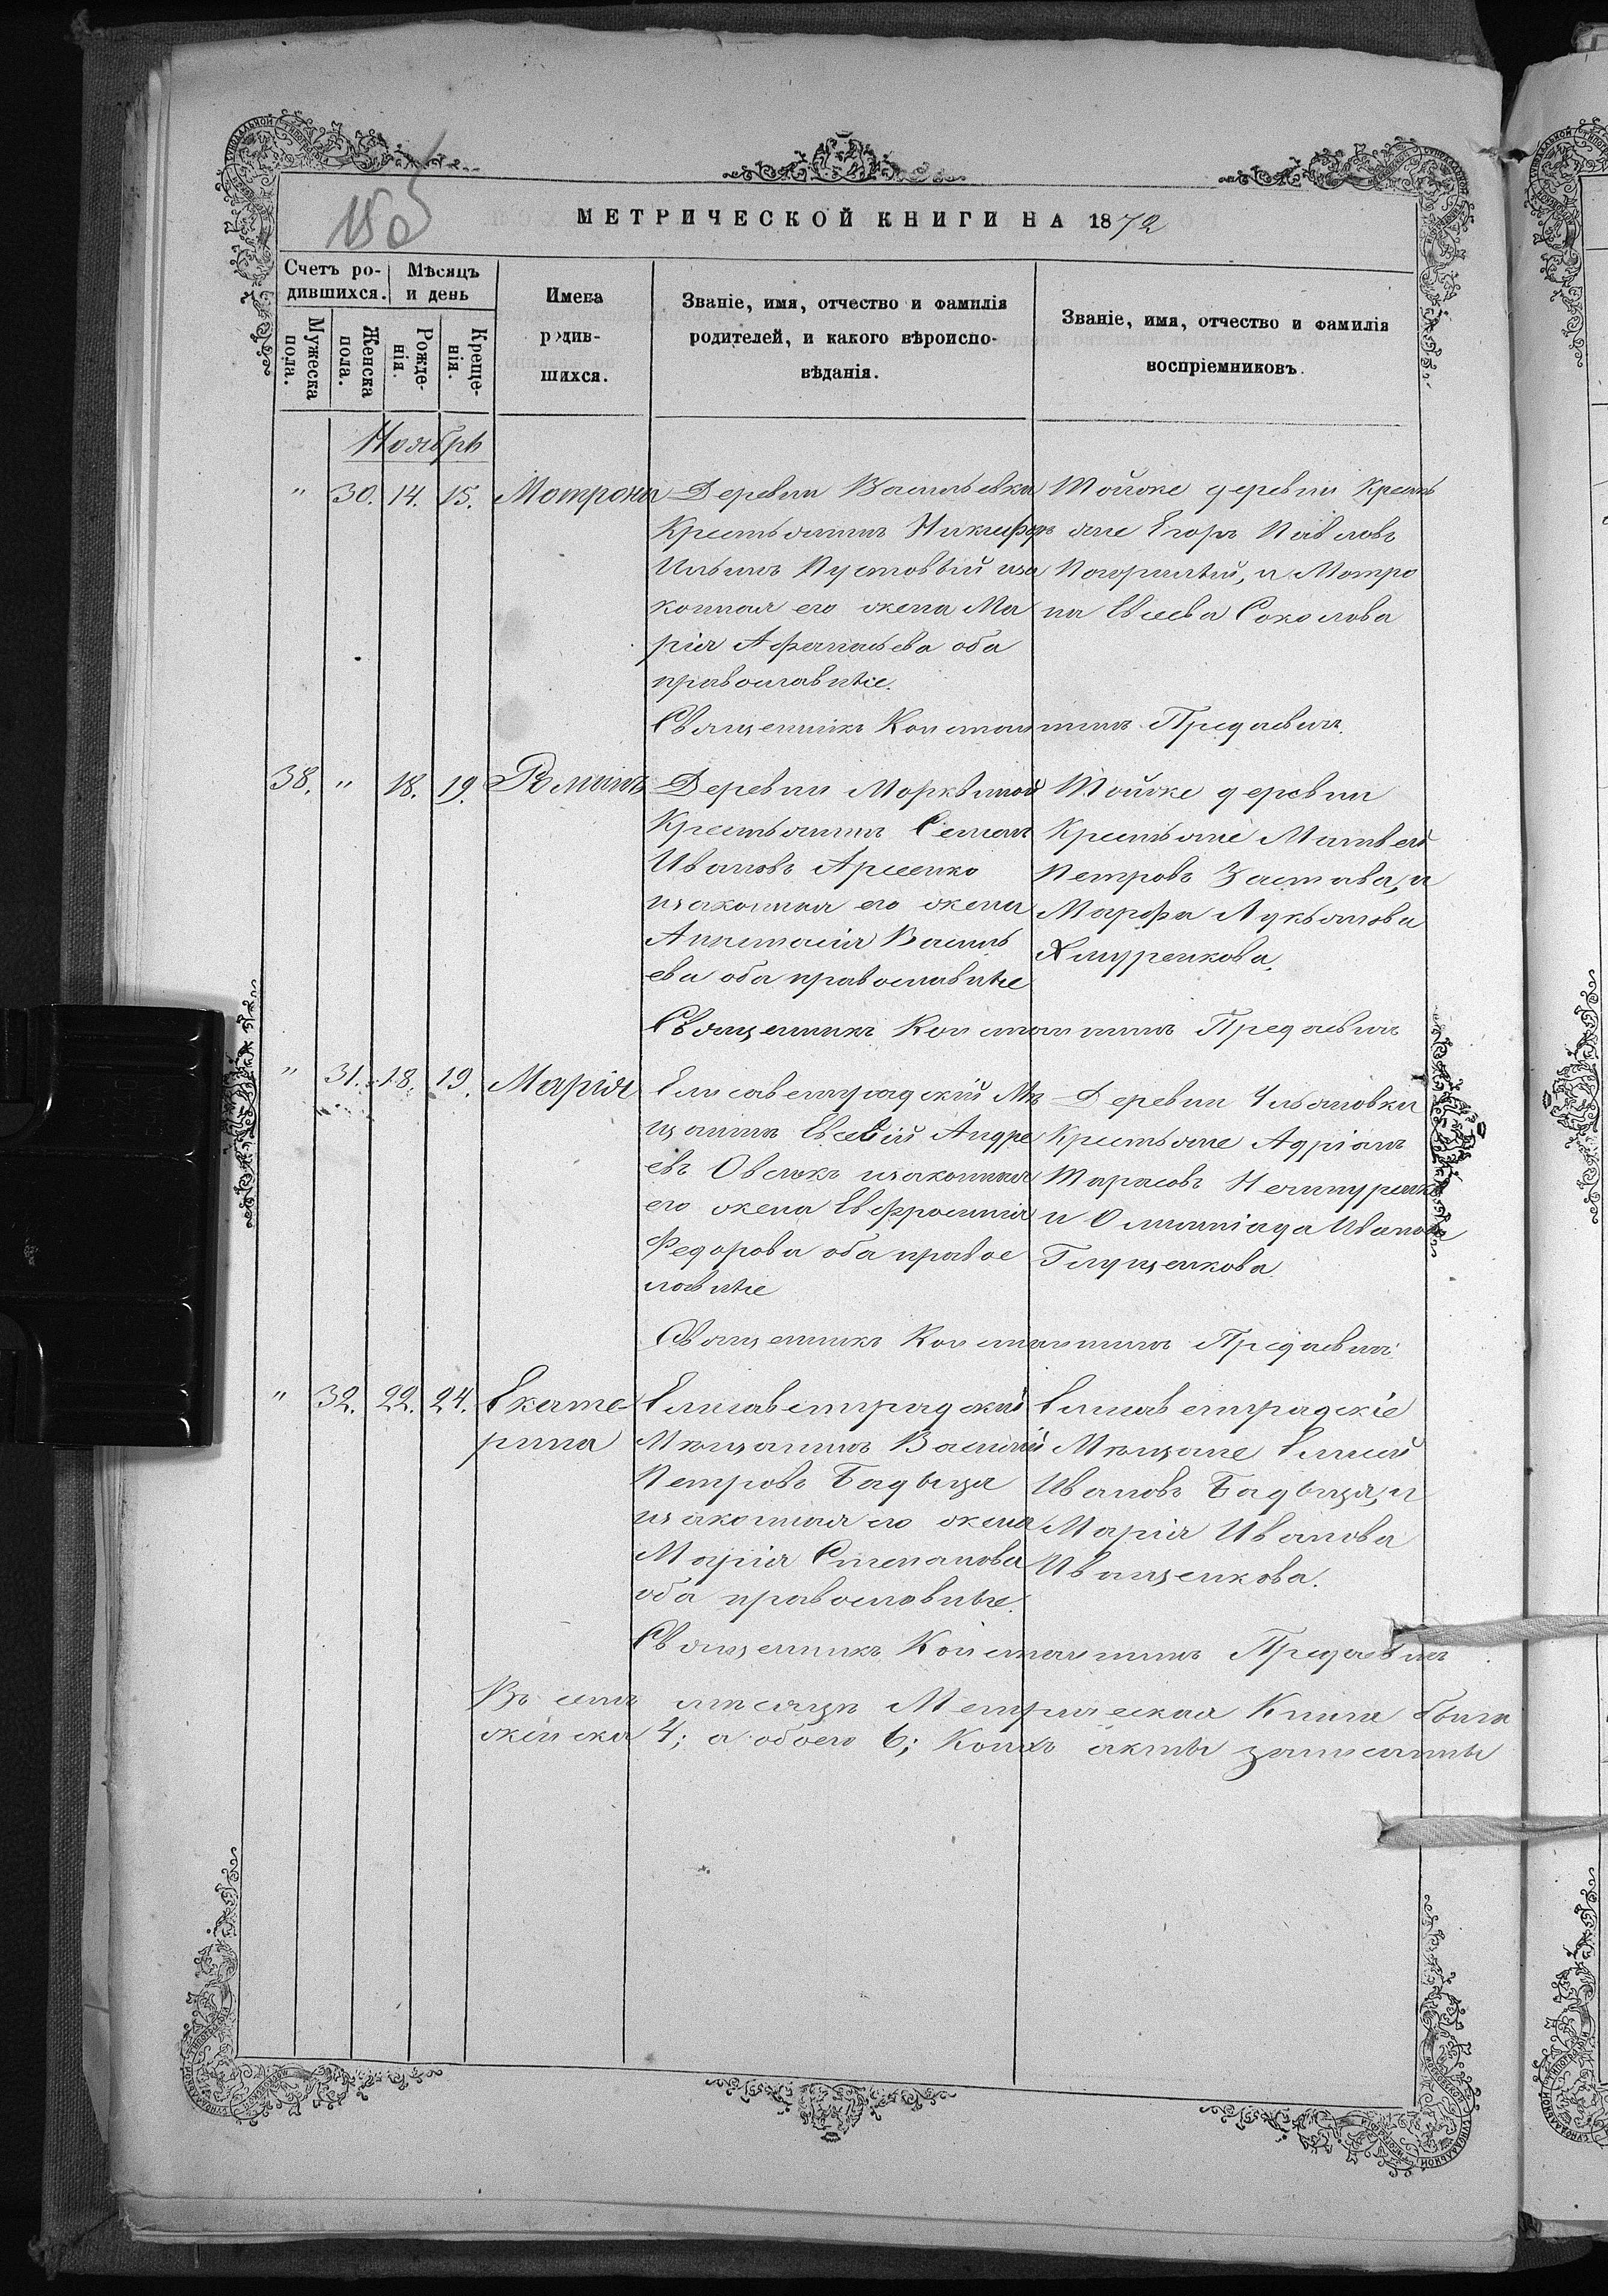 МЕТРИЧЕСКОЙ КНИГИ НА 1872
Счетъ ро-
дившихся.
Мѣсяцъ
и день
Мужеска
пола.
Женска
пола.
Рожде-
нія.
Креще-
нія.
Имена
родив-
шихся.
Званіе, имя, отчество и фамилія
родителей, и какого вѣроиспо-
вѣданія.
Званіе, имя, отчество и фамилія
воспріемниковъ.
Ноябрь
" 30. 14. 15. Матрона
Деревни Васильевки
Крестьянинъ Никифоръ
Ильинъ Пустовый иза
конная его жена Ма
рія Афанасьева оба
православные.
Тойже деревни Кресть
яне Егоръ Павловъ
Погорилый, и Матро
на Евсеева Соколова
Священникъ Константинъ
38. " 18. 19.
Деревни Марквиной
Крестьянинъ Семенъ
Ивановъ Арсенко
изаконная его жена
Анастасія Василь
ева оба православные
Тойже деревни
Крестьяне Матвей
Петровъ Застава, и
Марфа Лукьянова
Хмуренкова.
Священникъ Константинъ
" 31. 18. 19. Марія
Елисаветградскій Мѣ
щанинъ Евсевій Андре
евъ изаконная
его жена Евфросинія
Федорова оба правос
лавные
Деревни Ульяновки
Крестьяне Адріанъ
Тарасовъ
и Олимпіада Иванова
Глущенкова.
Священникъ Константинъ
" 32. 22. 24. Екате-
рина
Елисаветградскій
Мѣщанинъ Василій
Петровъ
изаконная его жена
Марія Степанова
оба православные.
Елисаветградскіе
Мѣщане Елисей
Ивановъ
Марія Иванова
Иващенкова.
Священникъ Константинъ
Въ семъ мѣсяцѣ Метрическая Книга
женска 4; а обоего 6; Коихъ акты записаны